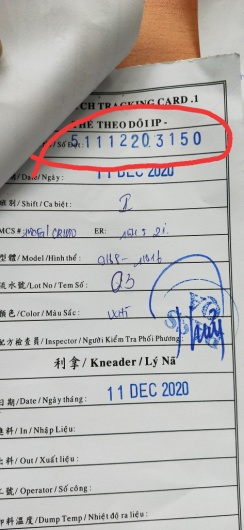 CH TRACKING CARD .1
THẺ THEO DÕI IP -
/Số Đợt: 5111220.3150
期/Date/Ngày: 11 DEC 2020
班別/Shift/Ca biệt: I
MCS #: ER:
型體/Model/Hình thể:
流水號/Lot No/Tem Số: 03
顏色/Color/Màu Sắc:
配方檢查員/Inspector/Người Kiểm Tra Phối Phương:
利拿/Kneader/Lý Nã
日期/Date/Ngày tháng: 11 DEC 2020
進料/In/Nhập Liệu:
出料/Out/Xuất liệu:
工號/Operator/Số công:
卸料溫度/Dump Temp/Nhiệt độ ra liệu: